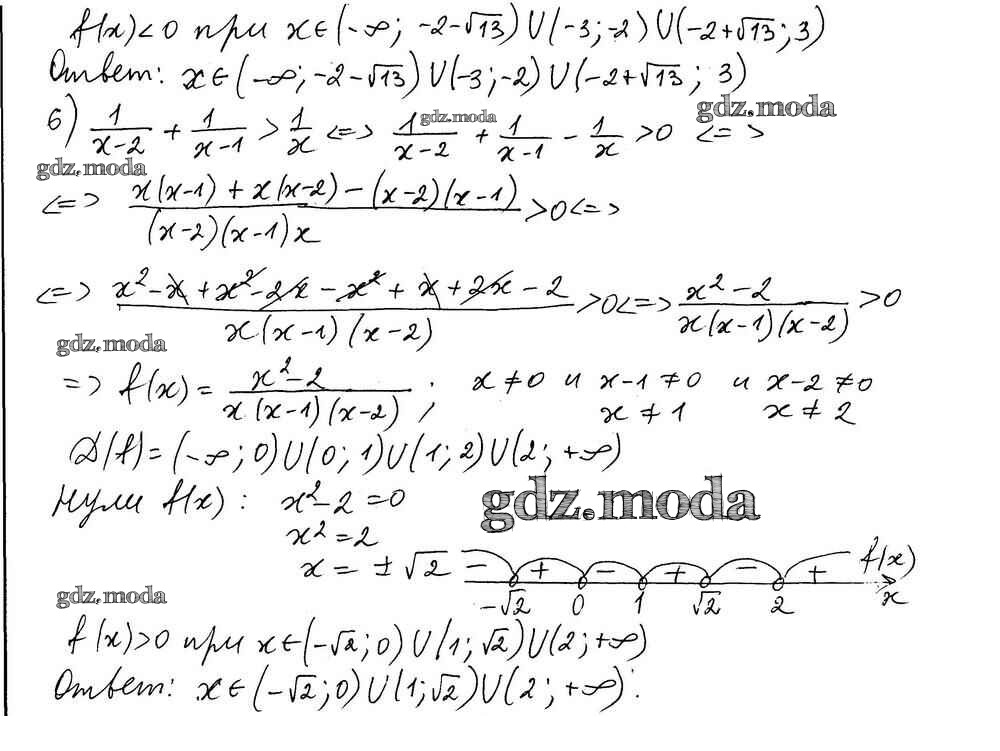 f(x)<0 при x∈(-∞; -2-√13)∪(-3;-2)∪(-2+√13; 3)
Ответ: x∈(-∞; -2-√13)∪(-3;-2)∪(-2+√13; 3)
б) 1/(x-2) + 1/(x-1) > 1/x <=> 1/(x-2) + 1/(x-1) - 1/x >0 <=>
gdz.moda
gdz.moda
gdz.moda
<=> (x(x-1) + x(x-2) - (x-2)(x-1))/((x-2)(x-1)x) >0 <=>
<=> (x²-x+x²-2x-x²+x+2x-2)/(x(x-1)(x-2)) >0 <=> (x²-2)/(x(x-1)(x-2)) >0
gdz.moda
=> f(x) = (x²-2)/(x(x-1)(x-2)); x≠0 и x-1≠0 и x-2≠0
x≠1 x≠2
D(f)=(-∞; 0)∪(0; 1)∪(1; 2)∪(2; +∞)
Нули f(x): x²-2=0
gdz.moda
x²=2
x=±√2
- + - + - + f(x)
-√2 0 1 √2 2 x
gdz.moda
f(x)>0 при x∈(-√2; 0)∪(1; √2)∪(2; +∞)
Ответ: x∈(-√2; 0)∪(1; √2)∪(2; +∞).